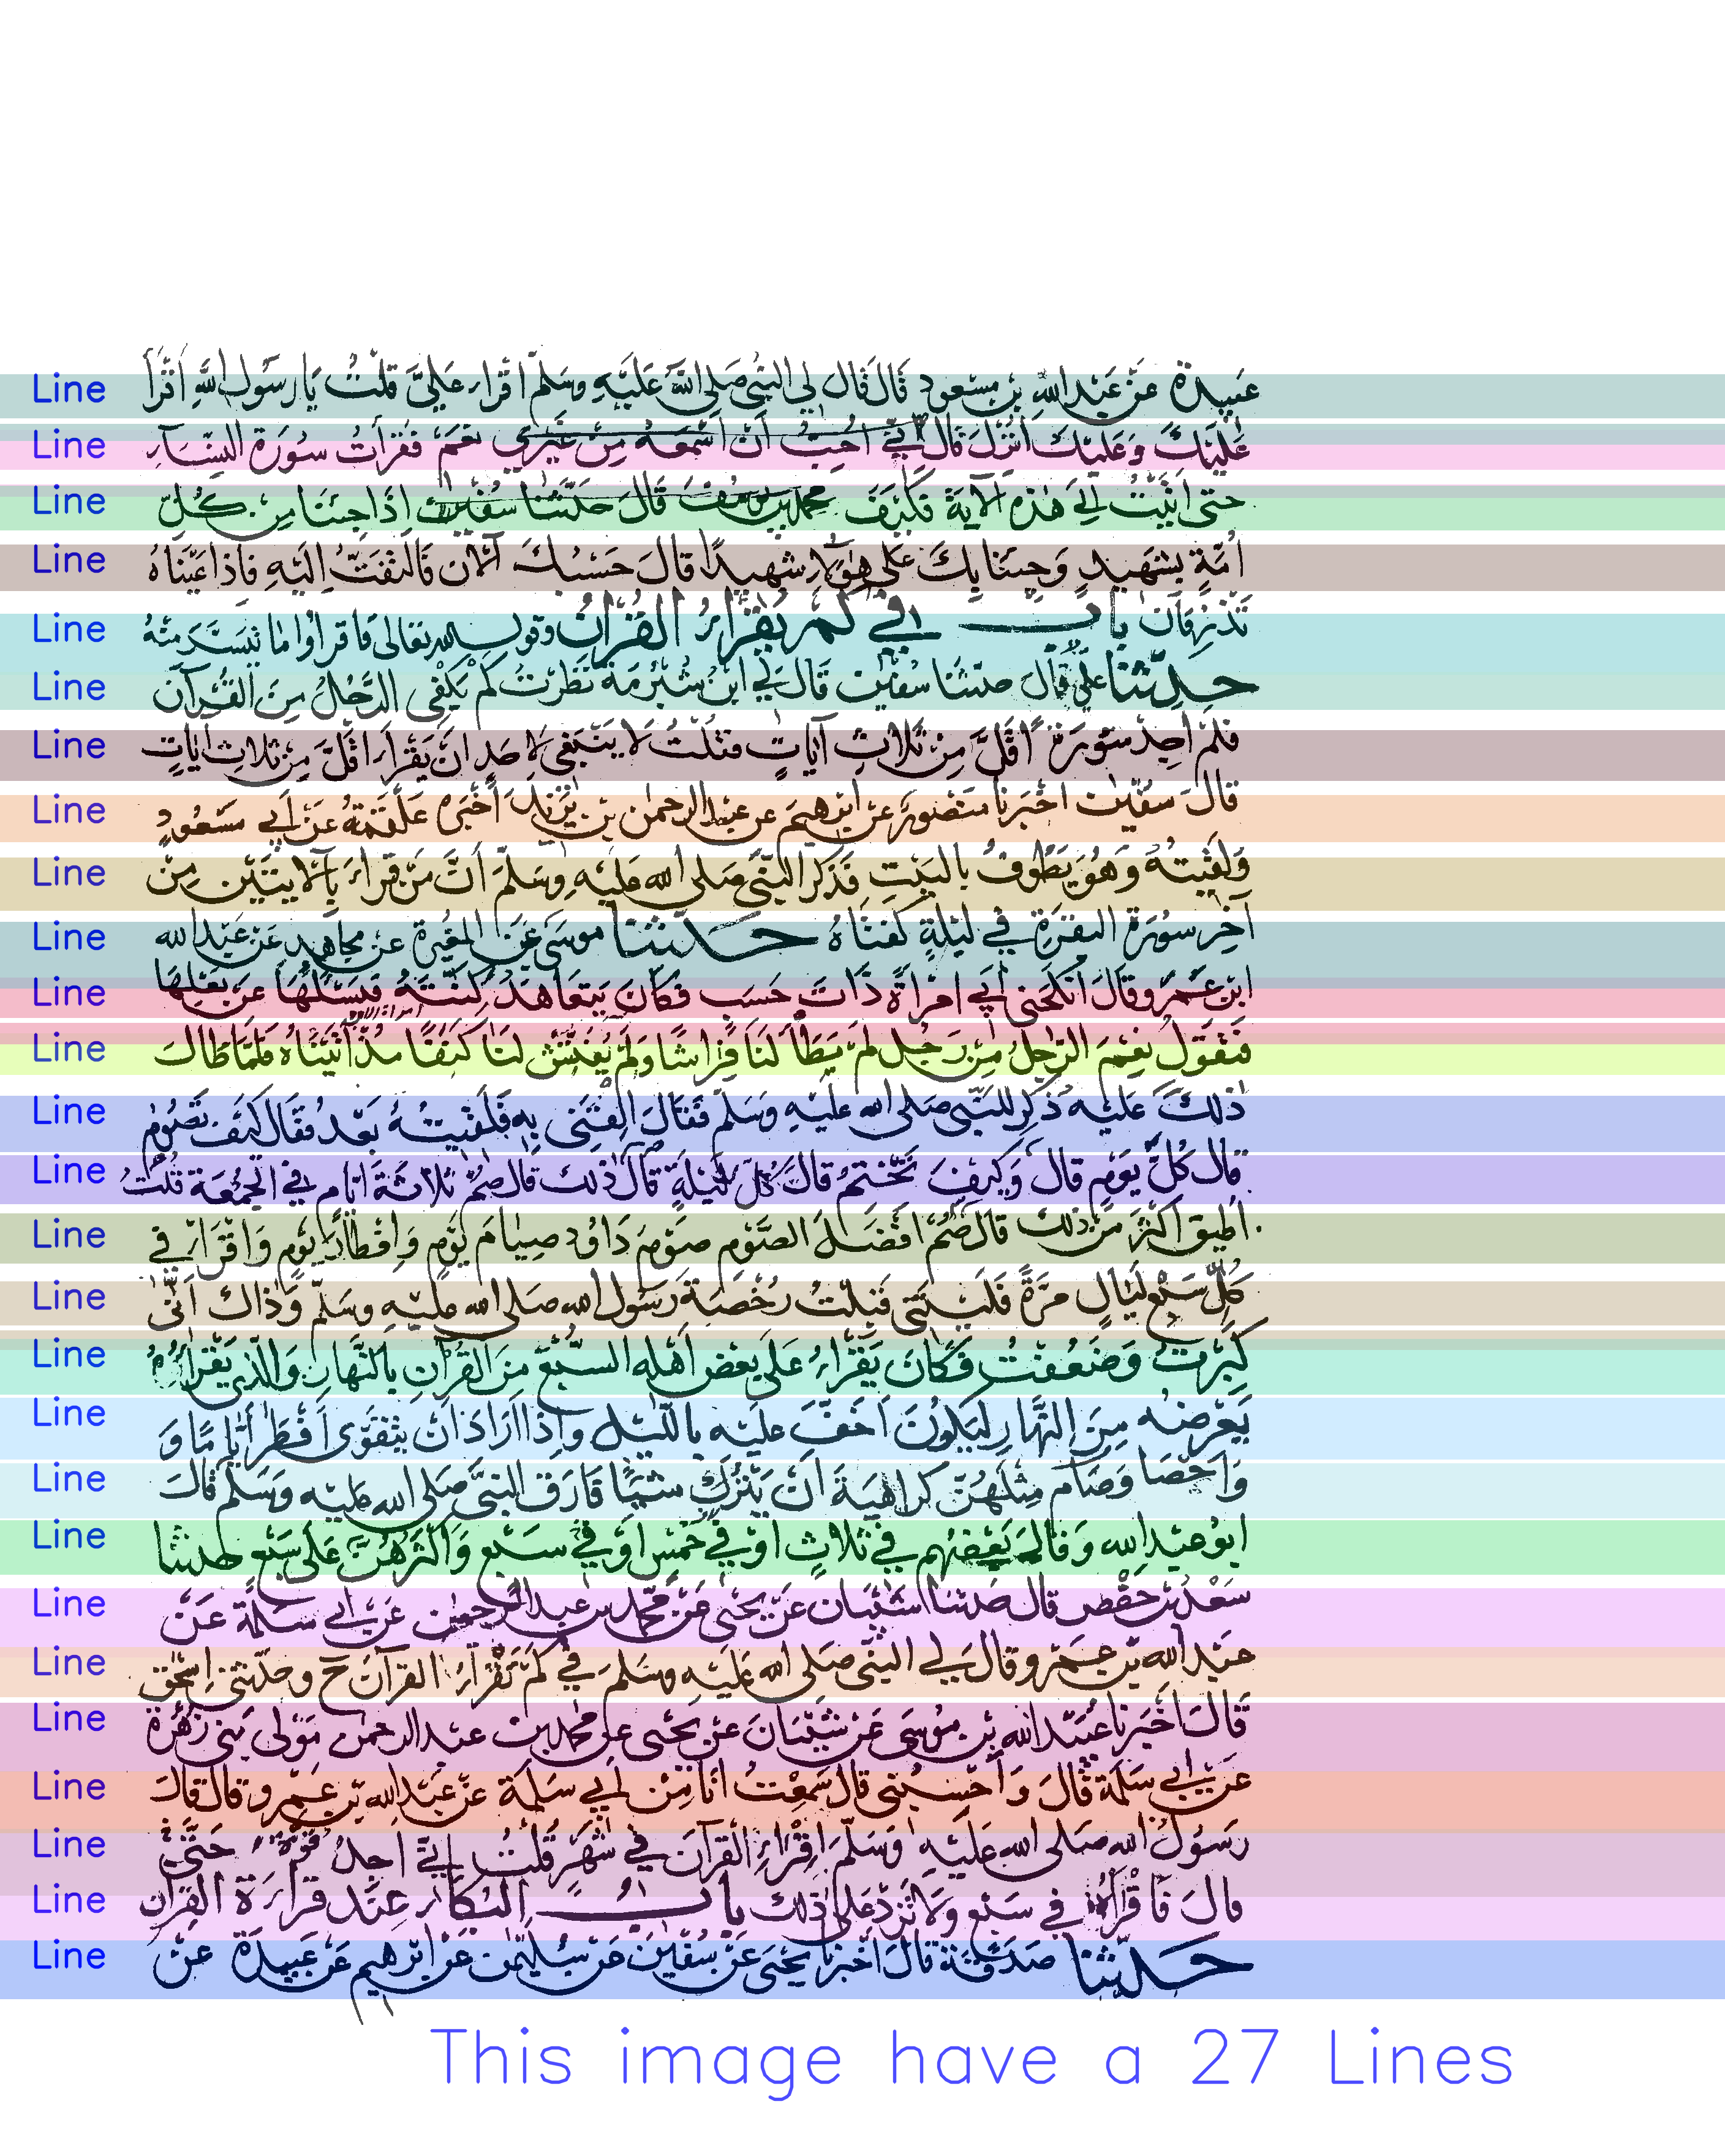 Line عبيدة عن عبد الله بن مسعود قال قال لي النبي صلى الله عليه وسلم اقرا علي قلت يا رسول الله اقرأ
Line عليك وعليك انزل قال اني احب ان اسمعه من غيري نعم فقرأت سورة النساء
Line حتى اتيت الى هذه الاية فكيف محمد بن يوسف قال حدثنا سفين اذا جئنا من كل
Line أمة بشهيد وجئنا بك على هؤلاء شهيدا قال حسبك الآن فالتفت اليه فاذا عيناه
Line تذرفان باب في كم يقراء القرآن وقول الله تعالى فاقرأوا ما تيسر منه
Line حدثنا علي قال حدثنا سفين قال لي ابن شبرمة نظرت كم يكفي الرجل من القرآن
Line فلم اجد سورة أقل من ثلاث آيات فقلت لا ينبغي لاحد ان يقرأ اقل من ثلاث آيات
Line قال سفين اخبرنا منصور عن ابرهيم عن عبد الرحمن بن يزيد أخبره علقمة عن أبي مسعود
Line ولقيته وهو يطوف بالبيت فذكر النبي صلى الله عليه وسلم ان من قراء بالآيتين من
Line آخر سورة البقرة في ليلة كفتاه حدثنا موسى عن المغيرة عن مجاهد عن عبد الله
Line ابن عمرو قال انكحني أبي امرأة ذات حسب فكان يتعاهد كنته فيسئلها عن بعلها
Line فتقول نعم الرجل من رجل لم يطأ لنا فراشا ولم يفتش لنا كنفا مذ اتيناه فلما طال
Line ذلك عليه ذكر للنبي صلى الله عليه وسلم فقال القني به فلقيته بعد فقال كيف تصوم
Line قال كل يوم قال وكيف تختم قال كل ليلة قال ذلك قال صم ثلاثة ايام في الجمعة قلت
Line اطيق اكثر من ذلك قال صم افضل الصوم صوم داود صيام يوم وافطار يوم واقرا في
Line كل سبع ليال مرة فليتني قبلت رخصة رسول الله صلى الله عليه وسلم وذاك أني
Line كبرت وضعفت فكان يقراء على بعض اهله السبع من القرآن بالنهار والذي يقرأه
Line يعرضه من النهار ليكون اخف عليه بالليل واذا اراد ان يتقوى أفطر أياما و
Line وأحصا وصام مثلهن كراهية ان يترك شيئا فارق النبي صلى الله عليه وسلم قال
Line ابو عبد الله وقال بعضهم في ثلاث او في خمس او في سبع واكثرهن على سبع حدثنا
Line سعد بن حفص قال حدثنا شيبان عن يحيى عن محمد بن عبد الرحمن عن ابي سلمة عن
Line عبد الله بن عمرو قال لي النبي صلى الله عليه وسلم في كم تقراء القرآن ح وحدثني اسحق
Line قال اخبرنا عبيد الله بن موسى عن شيبان عن يحيى عن محمد بن عبد الرحمن مولى بني زهرة
Line عن ابي سلمة قال وأحسبني قال سمعت انا من أبي سلمة عن عبد الله بن عمرو قال قال
Line رسول الله صلى الله عليه وسلم اقراء القرآن في شهر قلت إني اجد قوة حتى
Line قال فاقرأه في سبع ولا تزد على ذلك باب البكاء عند قراءة القرآن
Line حدثنا صدقة قال اخبرنا يحيى عن سفين عن سليمن عن ابرهيم عن عبيدة عن
This image have a 27 Lines